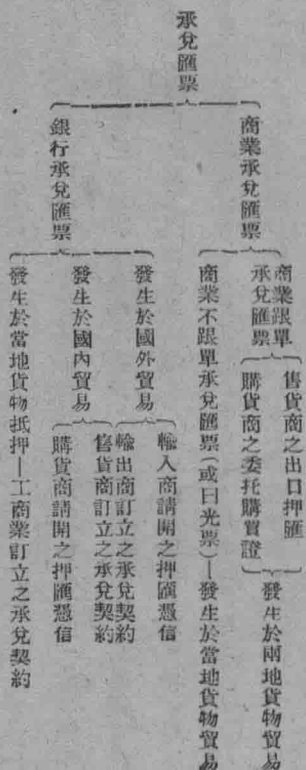 承兌匯票
商業承兌匯票
商業跟單
承兌匯票
售貨商之出口押匯
購貨商之委托購買證
發生於兩地貨物貿易
商業不跟單承兌匯票(或曰光票)—發生於當地貨物貿易
銀行承兌匯票
發生於國外貿易
輸入商請開之押匯憑信
輸出商訂立之承兌契約
發生於國內貿易
售貨商訂立之承兌契約
購貨商請開之押匯憑信
發生於當地貨物抵押—工商業訂立之承兌契約